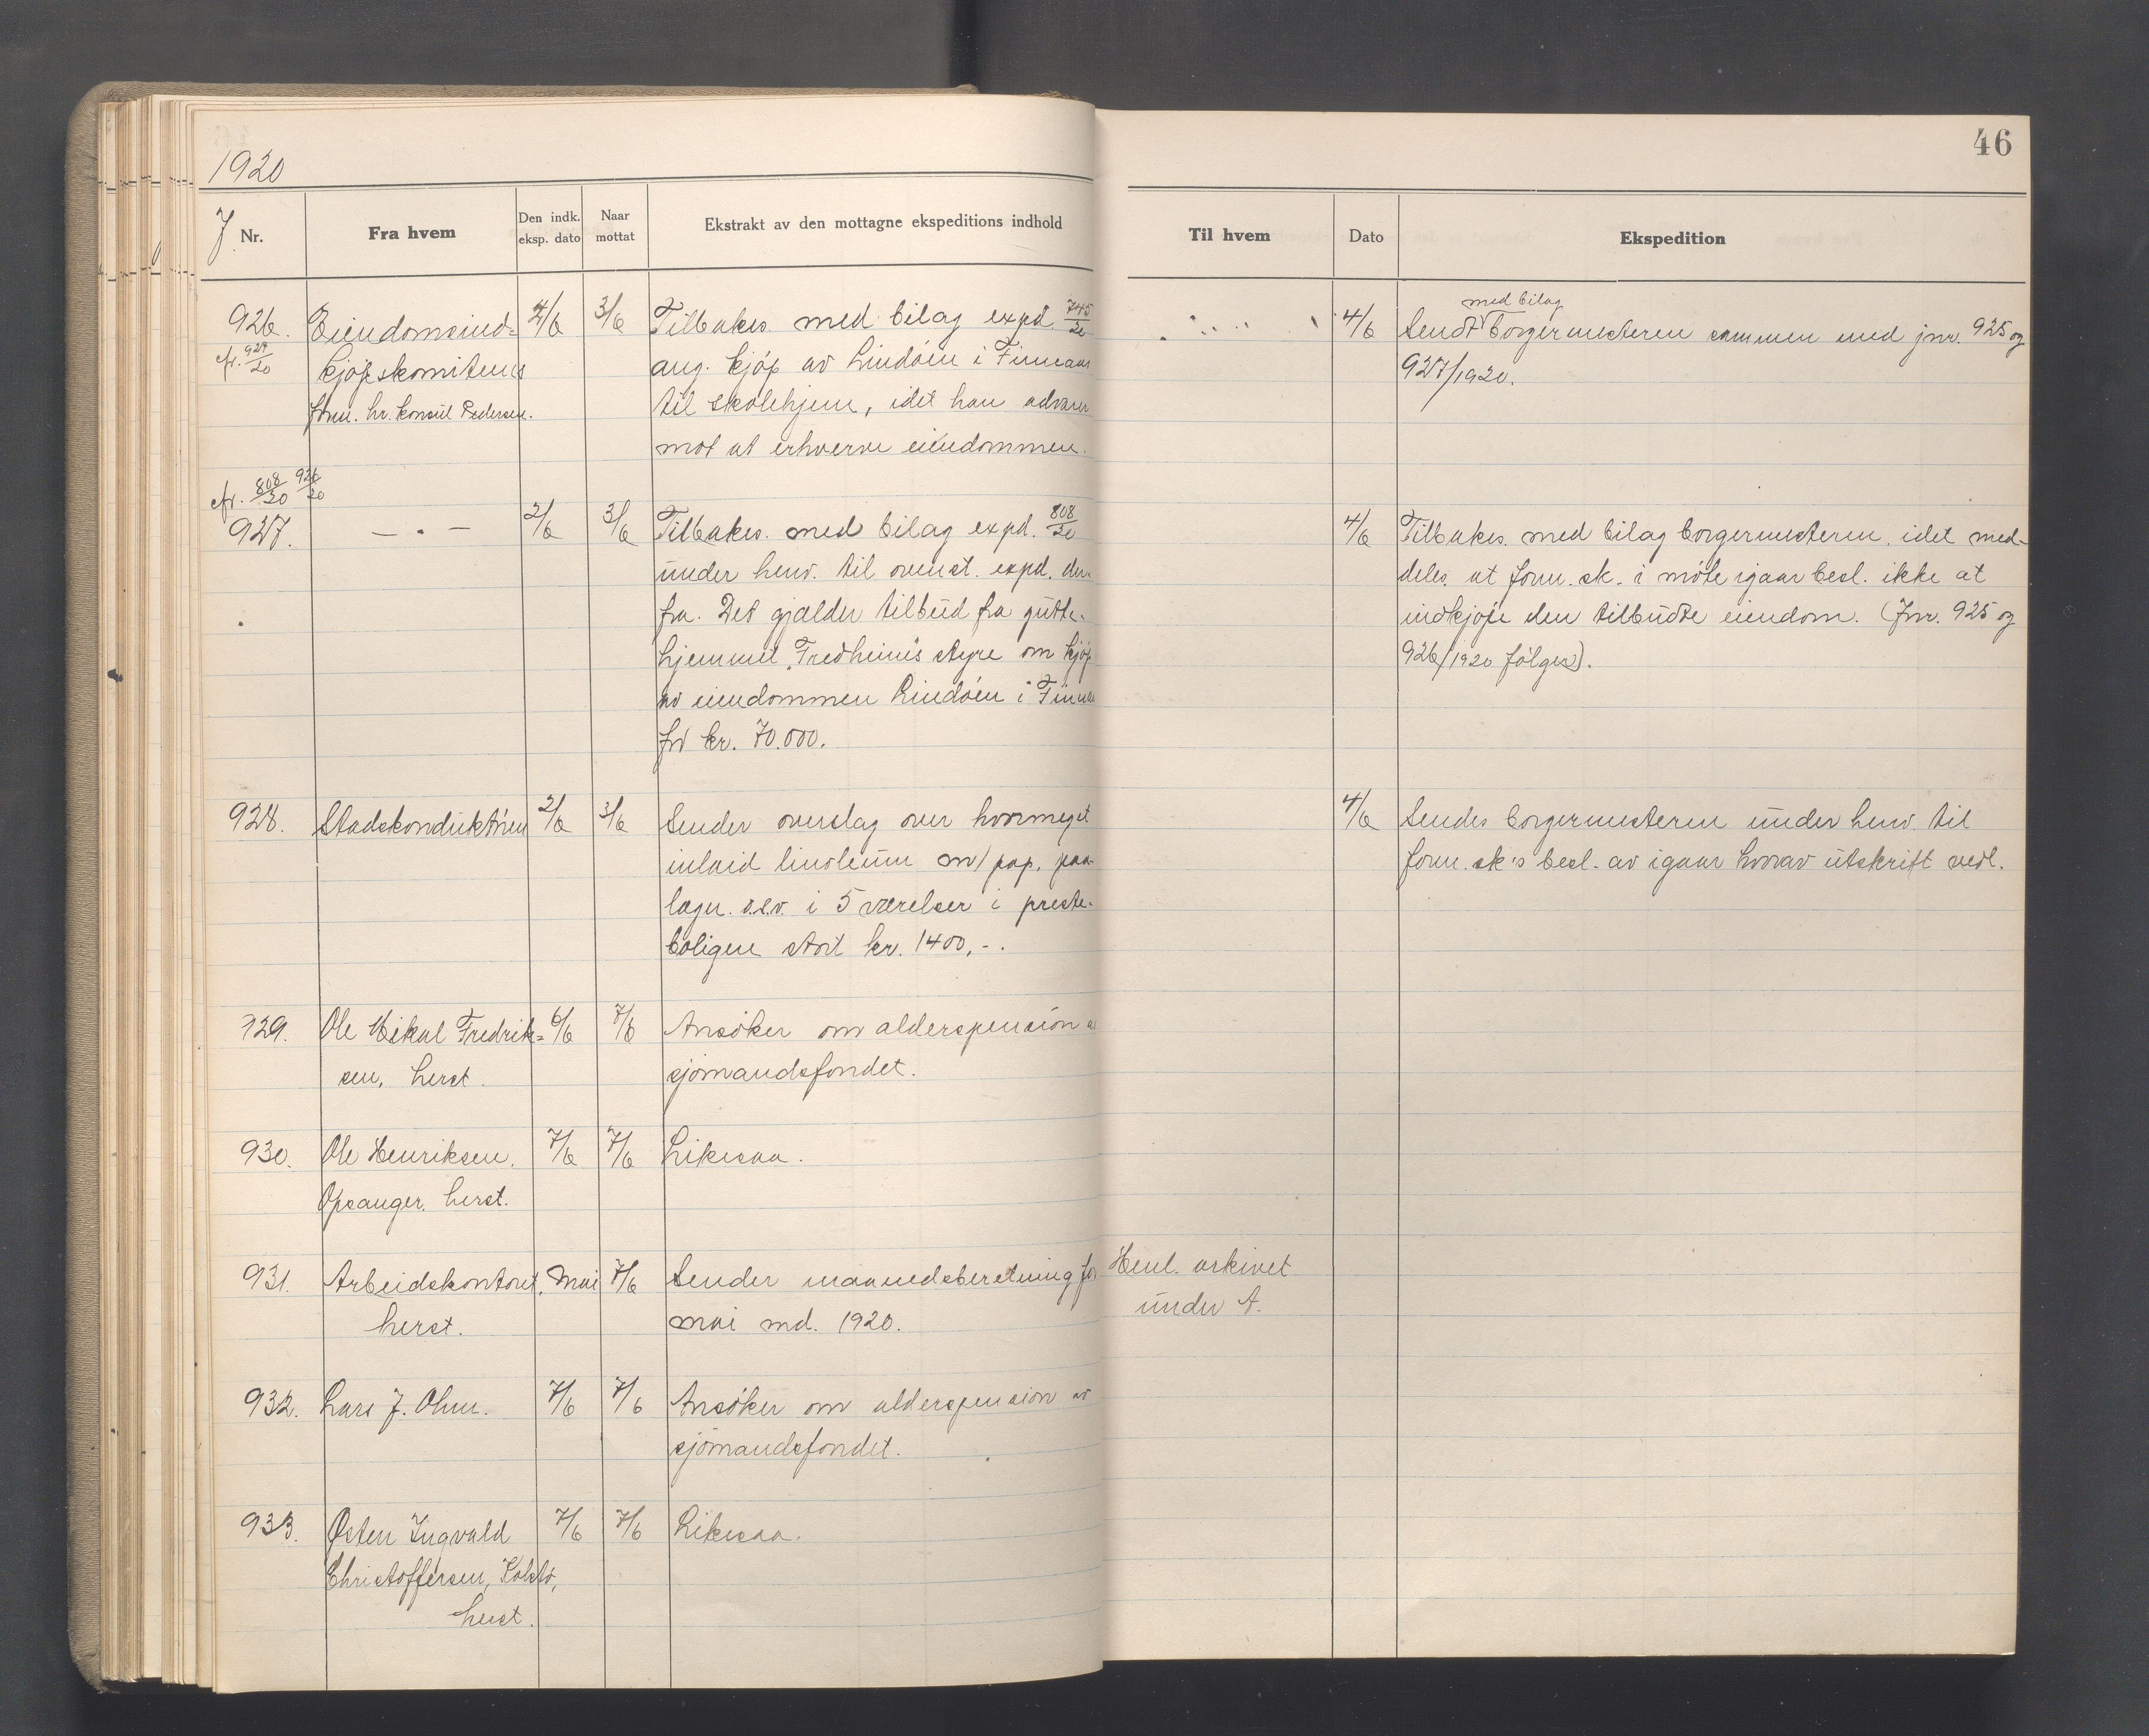 46
1920
J. Nr.
Fra hvem
Den indk. eksp. dato
Naar mottat
Ekstrakt av den mottagne ekspeditions indhold
Til hvem
Dato
Ekspedition
926.
cfr. 927/20
Eiendomsind=
kjøpskomiteens
form. hr. konsul Pedersen.
2/6
3/6
Tilbakes. med bilag expd. 745/20
ang. kjøp av Lindøen i Finnaas
til skolehjem, idet han advarer
mot at erhverve eiendommen.
4/6
med bilag
Sendt borgermesteren sammen med jnr. 925 og
927/1920.
cfr. 808/20 926/20
927.
— . —
2/6
3/6
Tilbakes. med bilag expd. 808/20
under henv. til ovenst. expd. der-
fra. Det gjælder tilbud fra gutte-
hjemmet "Fredheim"s styre om kjøp
av eiendommen Lindøen i Finnaas
for kr. 70.000.
4/6
Tilbakes. med bilag borgermesteren, idet med-
deles, at form.sk. i møte igaar besl. ikke at
indkjøpe den tilbudte eiendom. (Jnr. 925 og
926/1920 følger).
928.
Stadskonduktøren
2/6
3/6
Sender overslag over hvormeget
inlaid linoleum m/ pap, paa-
lægn. o.s.v. i 5 værelser i preste-
boligen stort kr. 1400,-.
4/6
Sendes borgermesteren under henv. til
form.sk's besl. av igaar hvorav utskrift vedl.
929.
Ole Mikal Fredrik=
sen, herst.
6/6
7/6
Ansøker om alderspension av
sjømandsfondet.
930.
Ole Henriksen,
Opsanger, herst.
7/6
7/6
Likesaa.
931.
Arbeidskontoret,
herst.
Mai
7/6
Sender maanedsberetning for
mai md. 1920.
Henl. arkivet
under A.
932.
Lars J. Ohm.
7/6
7/6
Ansøker om alderspension av
sjømandsfondet.
933.
Østen Ingvald
Christoffersen, Kolstø,
herst.
7/6
7/6
Likesaa.